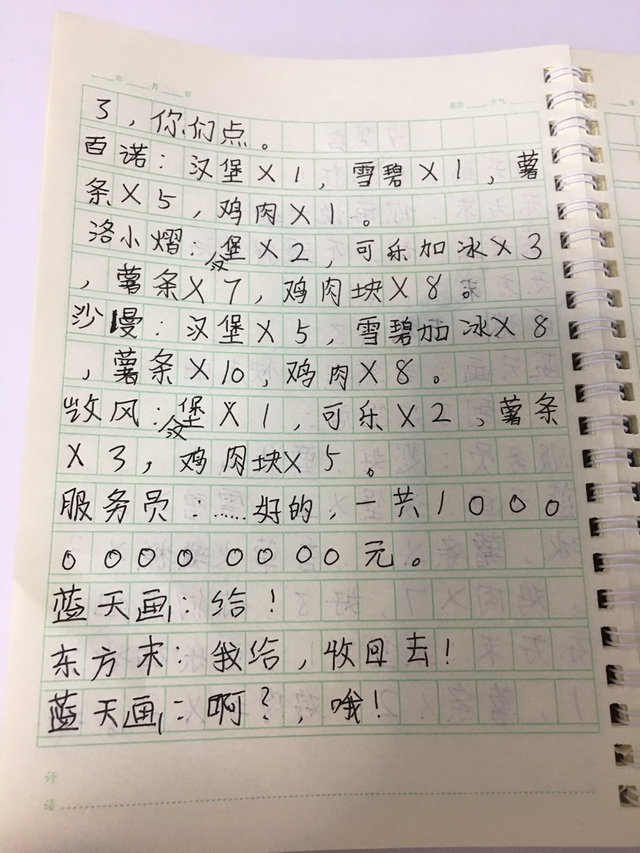 年 月 日
了，你们点。
百诺：汉堡X1，雪碧X1，薯
条X5，鸡肉X1。
洛小熠：汉堡X2，可乐加冰X3
，薯条X7，鸡肉块X8。
沙曼：汉堡X5，雪碧加冰X8
，薯条X10，鸡肉X8。
凯风：汉堡X1，可乐X2，薯条
X3，鸡肉块X5。
服务员：……好的，一共1000
00000000元。
蓝天画：给！
东方末：我给，收回去！
蓝天画：啊？，哦！
评
语